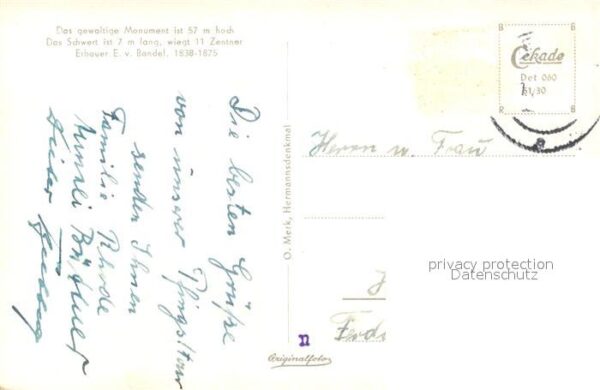 Das gewaltige Monument ist 57 m hoch
Das Schwert ist 7 m lang, wiegt 11 Zentner
Erbauer E. v. Bandel. 1838-1875
Die besten Grüße
von unserer Pfingsttour
senden Ihnen
Familie Rhode
O. Merk, Hermannsdenkmal
Originalfoto
B B
Cekade
Det 060
R B
Herrn u. Frau
Ferd
n
privacy protection
Datenschutz